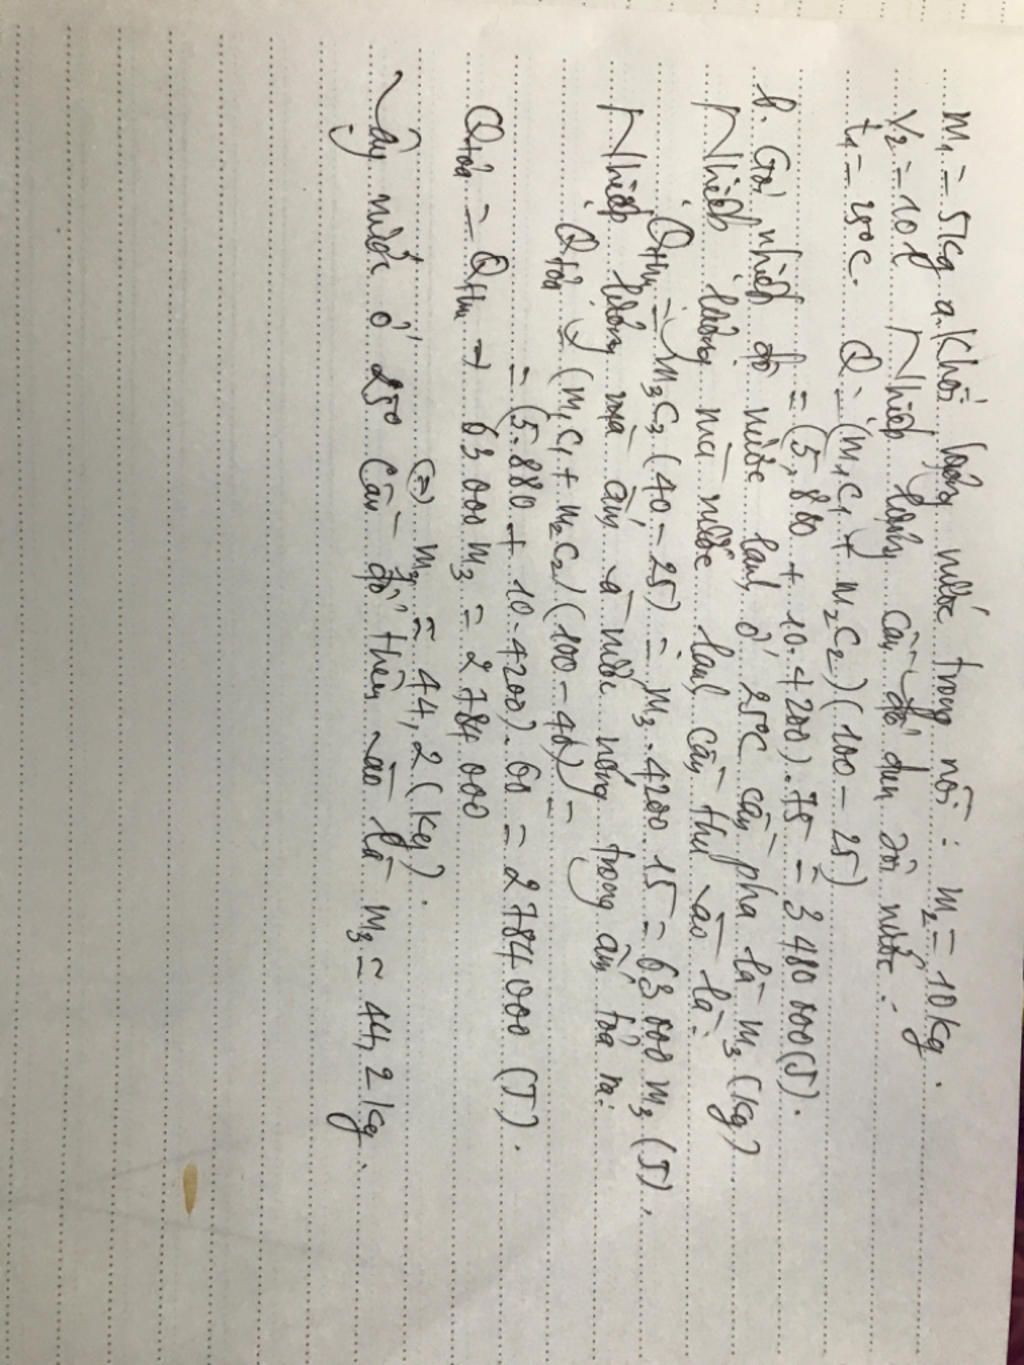 m₁ = 5kg a. Khối lượng nước trong nồi: m₂ = 10kg.
V₂ = 10l Nhiệt lượng cần để đun sôi nước:
t₁ = 25°C. Q = (m₁c₁ + m₂c₂)(100 - 25)
= (5.880 + 10.4200).75 = 3480000(J).
b. Gọi nhiệt độ nước lạnh ở 25°C cần pha là m₃ (kg)
Nhiệt lượng mà nước lạnh cần thu vào là:
Qthu = m₃c₂(40 - 25) = m₃.4200 15 = 63 000 m₃ (J).
Nhiệt lượng mà ấm và nước nóng trong ấm tỏa ra:
Qtỏa = (m₁c₁ + m₂c₂)(100 - 40) =
= (5.880 + 10.4200).60 = 2784000 (J).
Qtỏa = Qthu → 63 000 m₃ = 2784 000
(=) m₃ = 44,2 (kg).
Vậy nước ở 25° cần đổ thêm vào là m₃ = 44,2 kg.